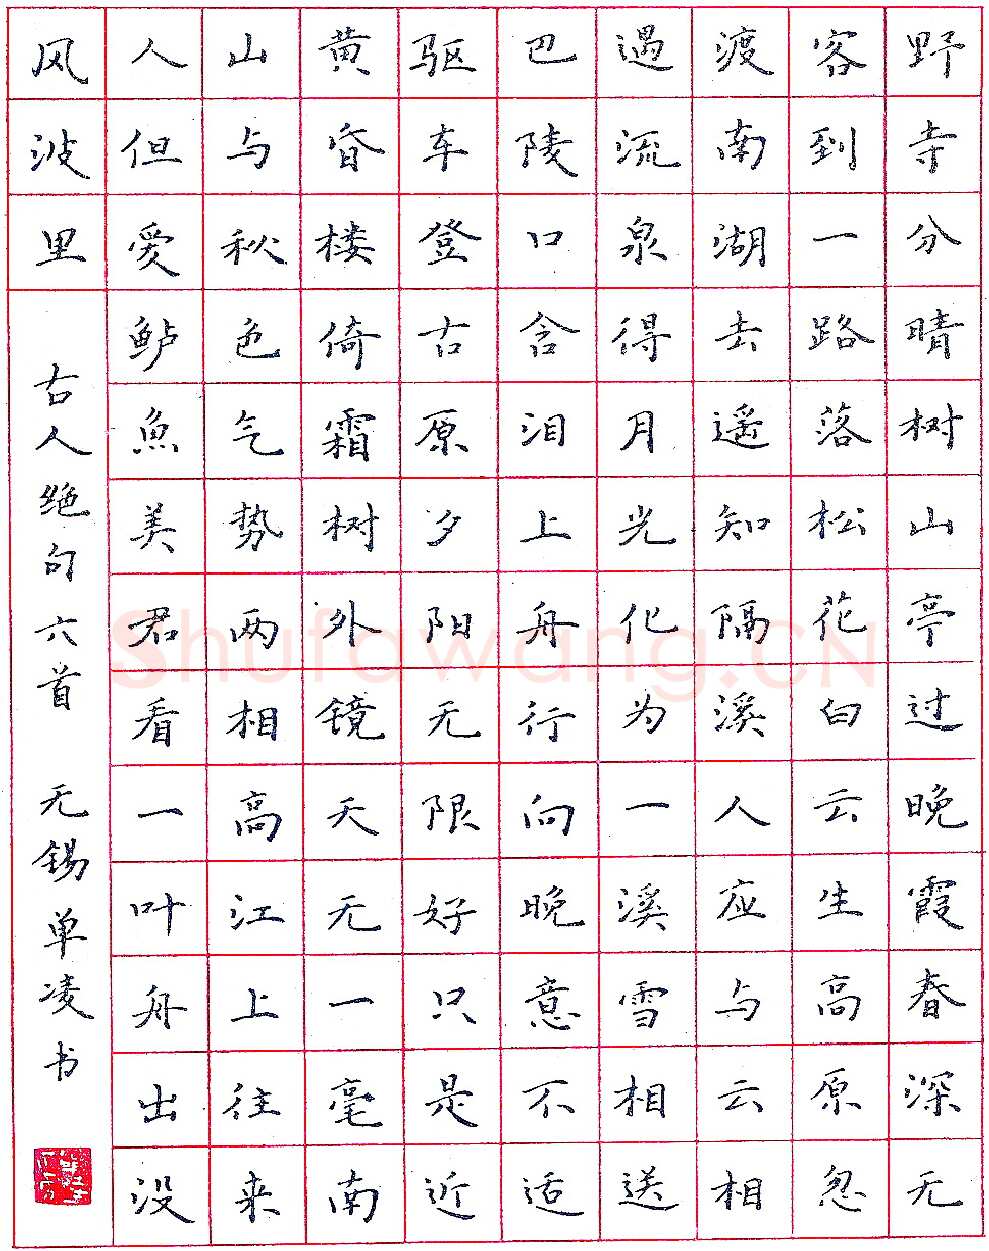 野寺分晴树山亭过晚霞春深无
客到一路落松花白云生高原忽
渡南湖去遥知隔溪人应与云相
遇流泉得月光化为一溪雪相送
巴陵口含泪上舟行向晚意不适
驱车登古原夕阳无限好只是近
黄昏楼倚霜树外镜天无一毫南
山与秋色气势两相高江上往来
人但爱鲈魚美君看一叶舟出没
风波里
古人绝句六首 无锡单凌书
Shufawang.CN